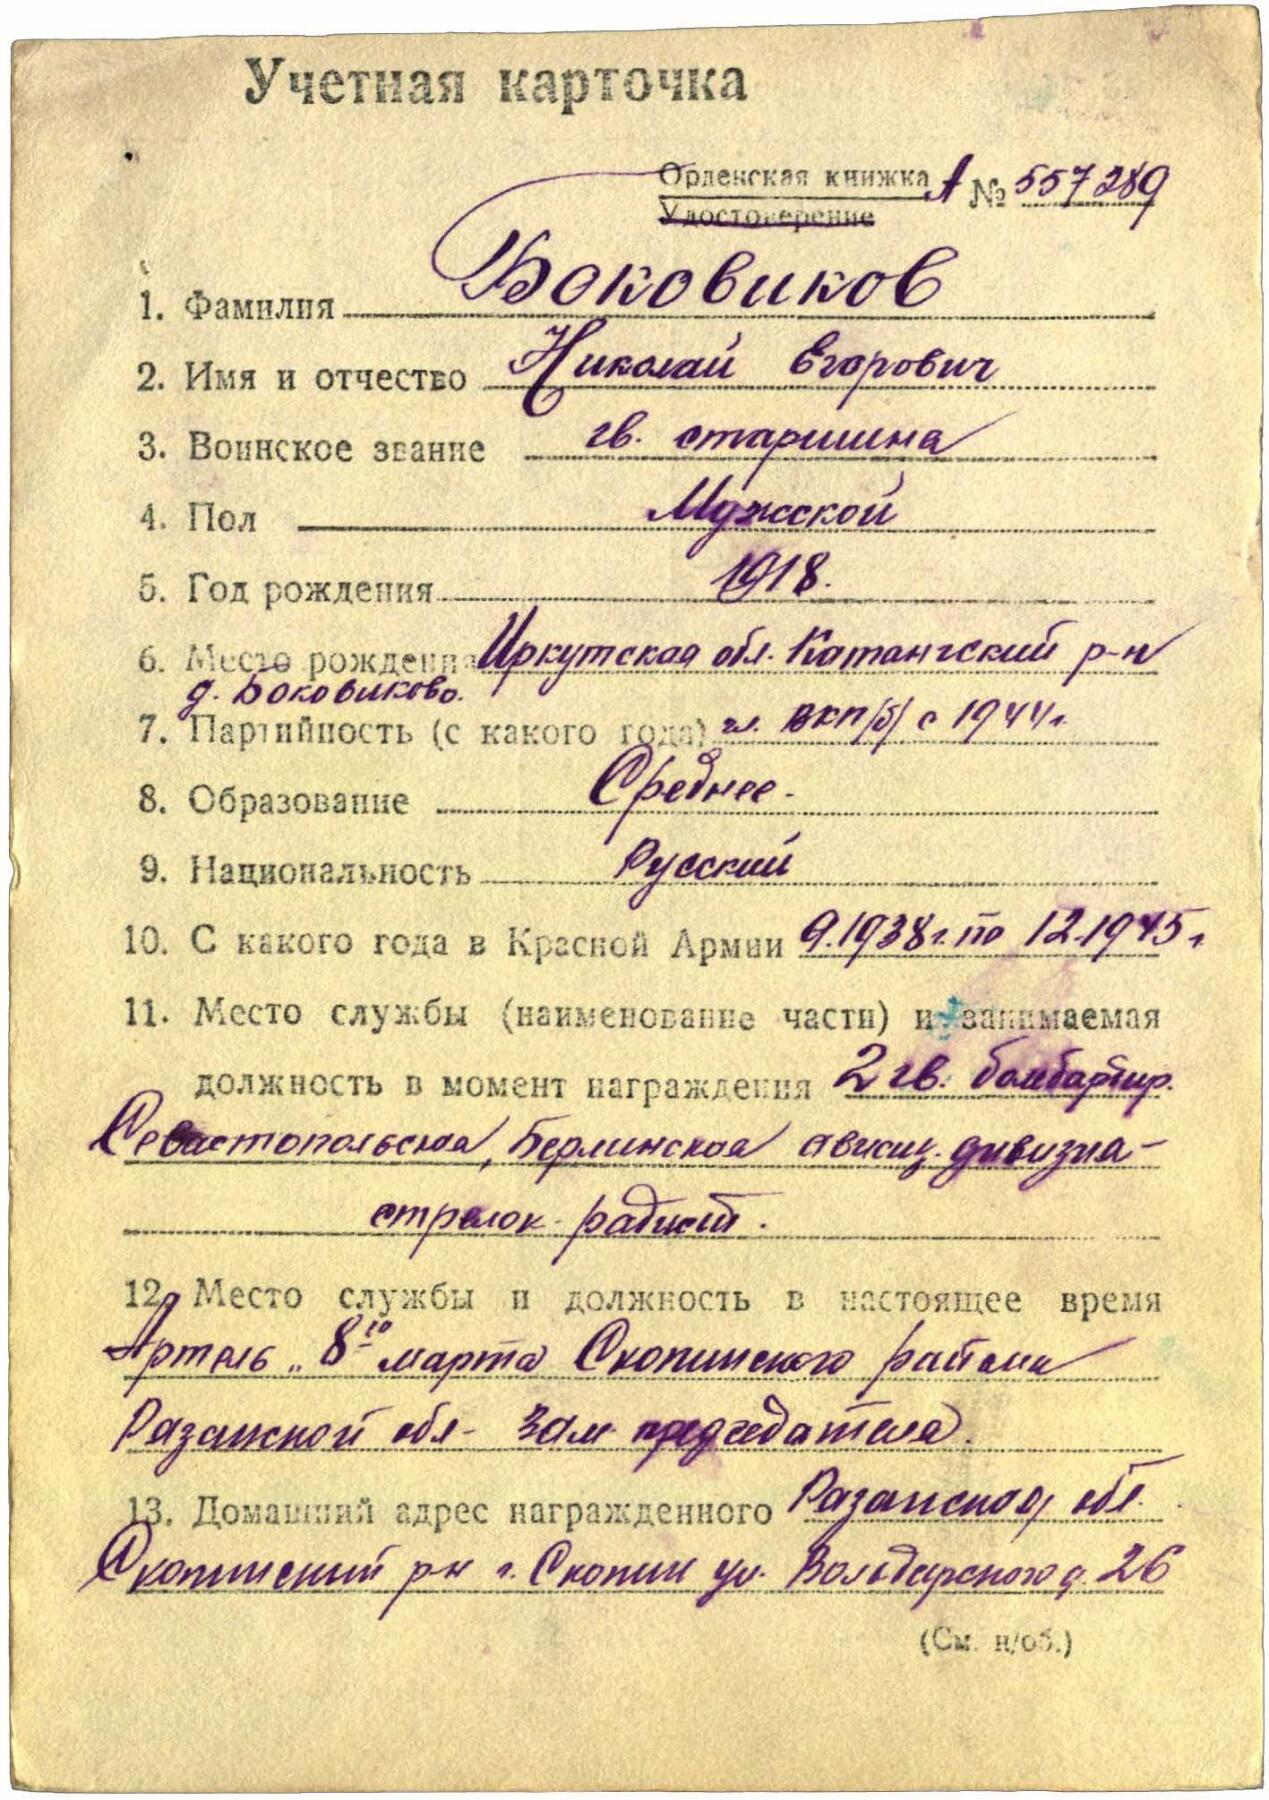 Учетная карточка
Орденская книжка А № 557289
Удостоверение
1. Фамилия Боковиков
2. Имя и отчество Николай Егорович
3. Воинское звание гв. старшина
4. Пол Мужской
5. Год рождения 1918.
6. Место рождения Иркутская обл. Катангский р-н
д. Боковиково.
7. Партийность (с какого года) чл. ВКП/б/ с 1944 г.
8. Образование Среднее.
9. Национальность Русский
10. С какого года в Красной Армии 9.1938 г. по 12.1945 г.
11. Место службы (наименование части) и занимаемая
должность в момент награждения 2 гв. бомбардир.
Севастопольская, Берлинская авиац. дивизия -
стрелок-радист.
12. Место службы и должность в настоящее время
Артель „8го марта Скопинского района
Рязанской обл - Зам председателя.
13. Домашний адрес награжденного Рязанская обл.
Скопинский р-н г. Скопин ул. Вольдарского д. 26
(См. н/об.)